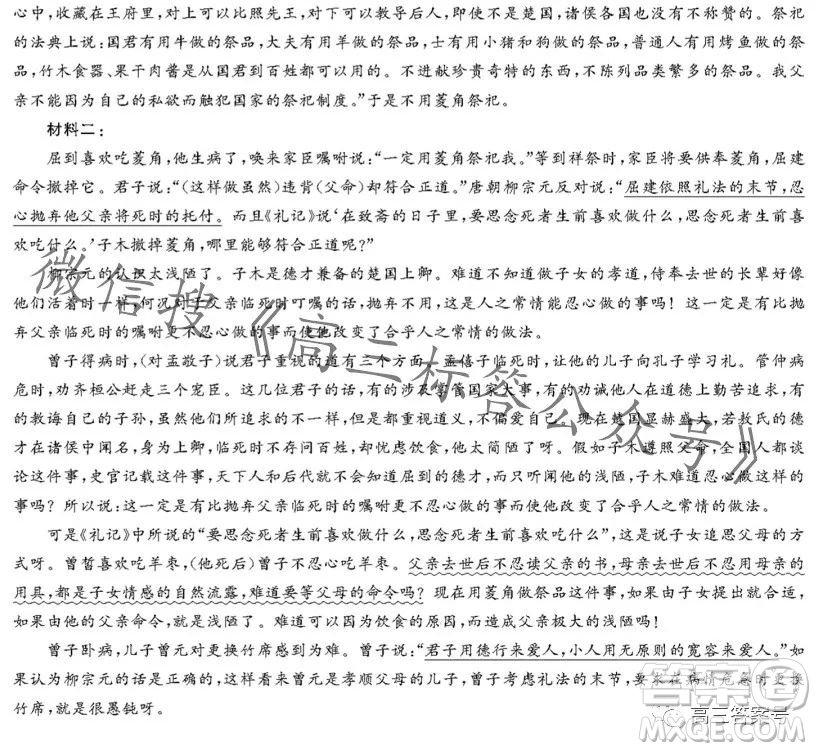 心中，收藏在王府里，对上可以比照先王，对下可以教导后人，即使不是楚国，诸侯各国也没有不称赞的。祭祀
的法典上说：国君有用牛做的祭品，大夫有用羊做的祭品，士有用小猪和狗做的祭品，普通人有用烤鱼做的祭
品，竹木食器、果干肉酱是从国君到百姓都可以用的。不进献珍贵奇特的东西，不陈列品类繁多的祭品。我父
亲不能因为自己的私欲而触犯国家的祭祀制度。”于是不用菱角祭祀。
材料二：
屈到喜欢吃菱角，他生病了，唤来家臣嘱咐说：“一定用菱角祭祀我。”等到祥祭时，家臣将要供奉菱角，屈建
命令撤掉它。君子说：“（这样做虽然）违背（父命）却符合正道。”唐朝柳宗元反对说：“屈建依照礼法的末节，忍
心抛弃他父亲将死时的托付。而且《礼记》说‘在致斋的日子里，要思念死者生前喜欢做什么，思念死者生前喜
欢吃什么。’子木撤掉菱角，哪里能够符合正道呢？”
柳宗元的认识太浅陋了。子木是德才兼备的楚国上卿。难道不知道做子女的孝道，侍奉去世的长辈好像
他们活着时一样，何况对于父亲临死时叮嘱的话，抛弃不用，这是人之常情能忍心做的事吗！这一定是有比抛
弃父亲临死时的嘱咐更不忍心做的事而使他改变了合乎人之常情的做法。
曾子得病时，（对孟敬子）说君子重视的道有三个方面。孟僖子临死时，让他的儿子向孔子学习礼。管仲病
危时，劝齐桓公赶走三个宠臣。这几位君子的话，有的涉及掌管国家大事，有的劝诫他人在道德上勤苦追求，有
的教诲自己的子孙，虽然他们所追求的不一样，但是都重视道义，不偏爱自己。现在楚国显赫盛大，若敖氏的德
才在诸侯中闻名，身为上卿，临死时不存问百姓，却忧虑饮食，他太简陋了呀。假如子木遵照父命，全国人都谈
论这件事，史官记载这件事，天下人和后代就不会知道屈到的德才，而只听闻他的浅陋，子木难道忍心做这样的
事吗？所以说：这一定是有比抛弃父亲临死时的嘱咐更不忍心做的事而使他改变了合乎人之常情的做法。
可是《礼记》中所说的“要思念死者生前喜欢做什么，思念死者生前喜欢吃什么”，这是说子女追思父母的方
式呀。曾皙喜欢吃羊枣，（他死后）曾子不忍心吃羊枣。父亲去世后不忍读父亲的书，母亲去世后不忍用母亲的
用具，都是子女情感的自然流露，难道要等父母的命令吗？现在用菱角做祭品这件事，如果由子女提出就合适，
如果由他的父亲命令，就是浅陋了。难道可以因为饮食的原因，而造成父亲极大的浅陋吗！
曾子卧病，儿子曾元对更换竹席感到为难。曾子说：“君子用德行来爱人，小人用无原则的宽容来爱人。”如
果认为柳宗元的话是正确的，这样看来曾元是孝顺父母的儿子，曾子考虑礼法的末节，要求在病情危急时更换
竹席，就是很愚钝呀。
微信搜《高三标答公众号》
答案圈
MXQE.COM
高三答案号